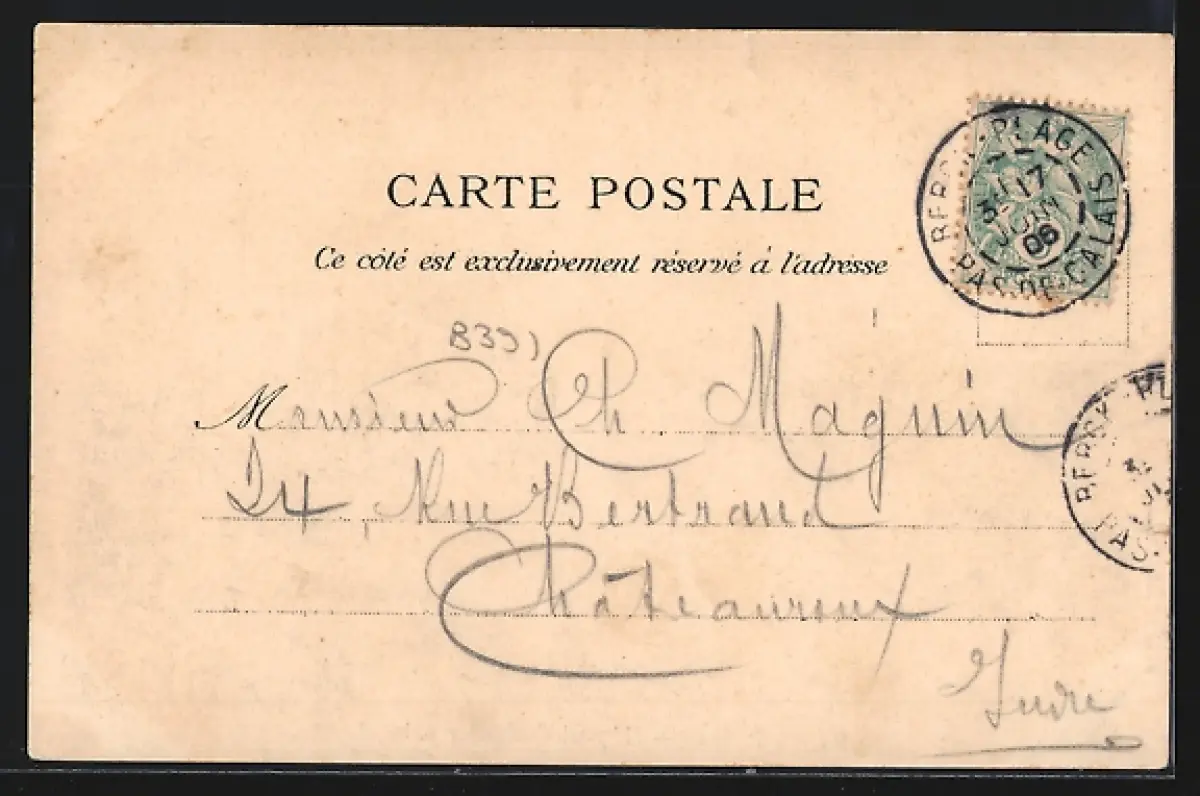 CARTE POSTALE
Ce côté est exclusivement réservé à l'adresse
BERCK-PLAGE
17
JUIN
06
PAS-DE-CALAIS
B39)
Monsieur Ch Maguin
24, Rue Bertrand
Châteauroux
Indre
BERCK
PAS